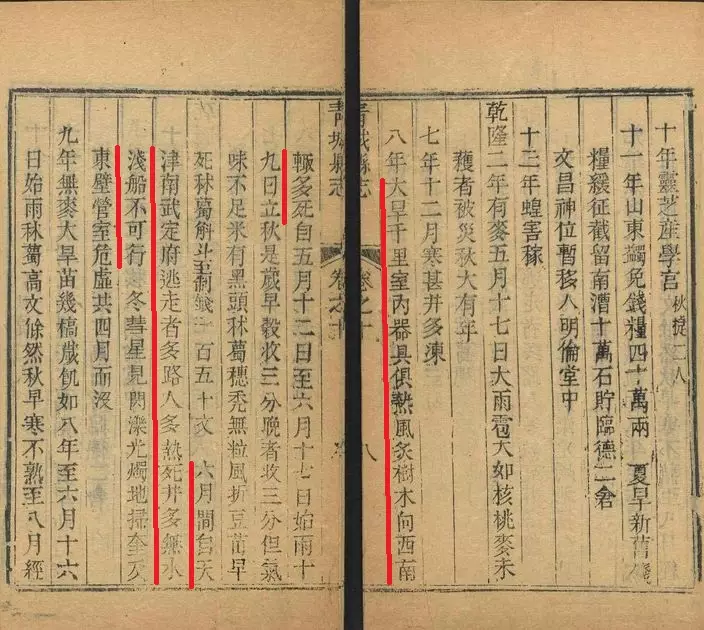 十年靈芝產學宮 秋捷二人
十一年山東蠲免錢糧四十萬兩 夏旱新舊錢
糧緩征截留南漕十萬石貯臨德二倉
文昌神位暫移入明倫堂中
十三年蝗害稼
乾隆二年有麥五月十七日大雨雹大如核桃麥未
穫者被災秋大有年
七年十二月寒甚井多凍
八年大旱千里室內器具俱熱風炙樹木向西南
青城縣志 卷之十 八
輙多死自五月十二日至六月十七日始雨十
九日立秋是歲早穀收三分晚者收三分但氣
味不足米有黑頭秫薥穗禿無粒風折豆苗早
死秫薥斛斗至制錢一百五十文 六月間自天
津南武定府逃走者多路人多熱死井多無水
淺船不可行 冬彗星見閃灤光燭地掃奎及
東壁營室危虛共四月而沒
九年無麥大旱苗幾槁歲飢如八年至六月十六
日始雨秫薥高丈餘然秋早寒不熟至八月經